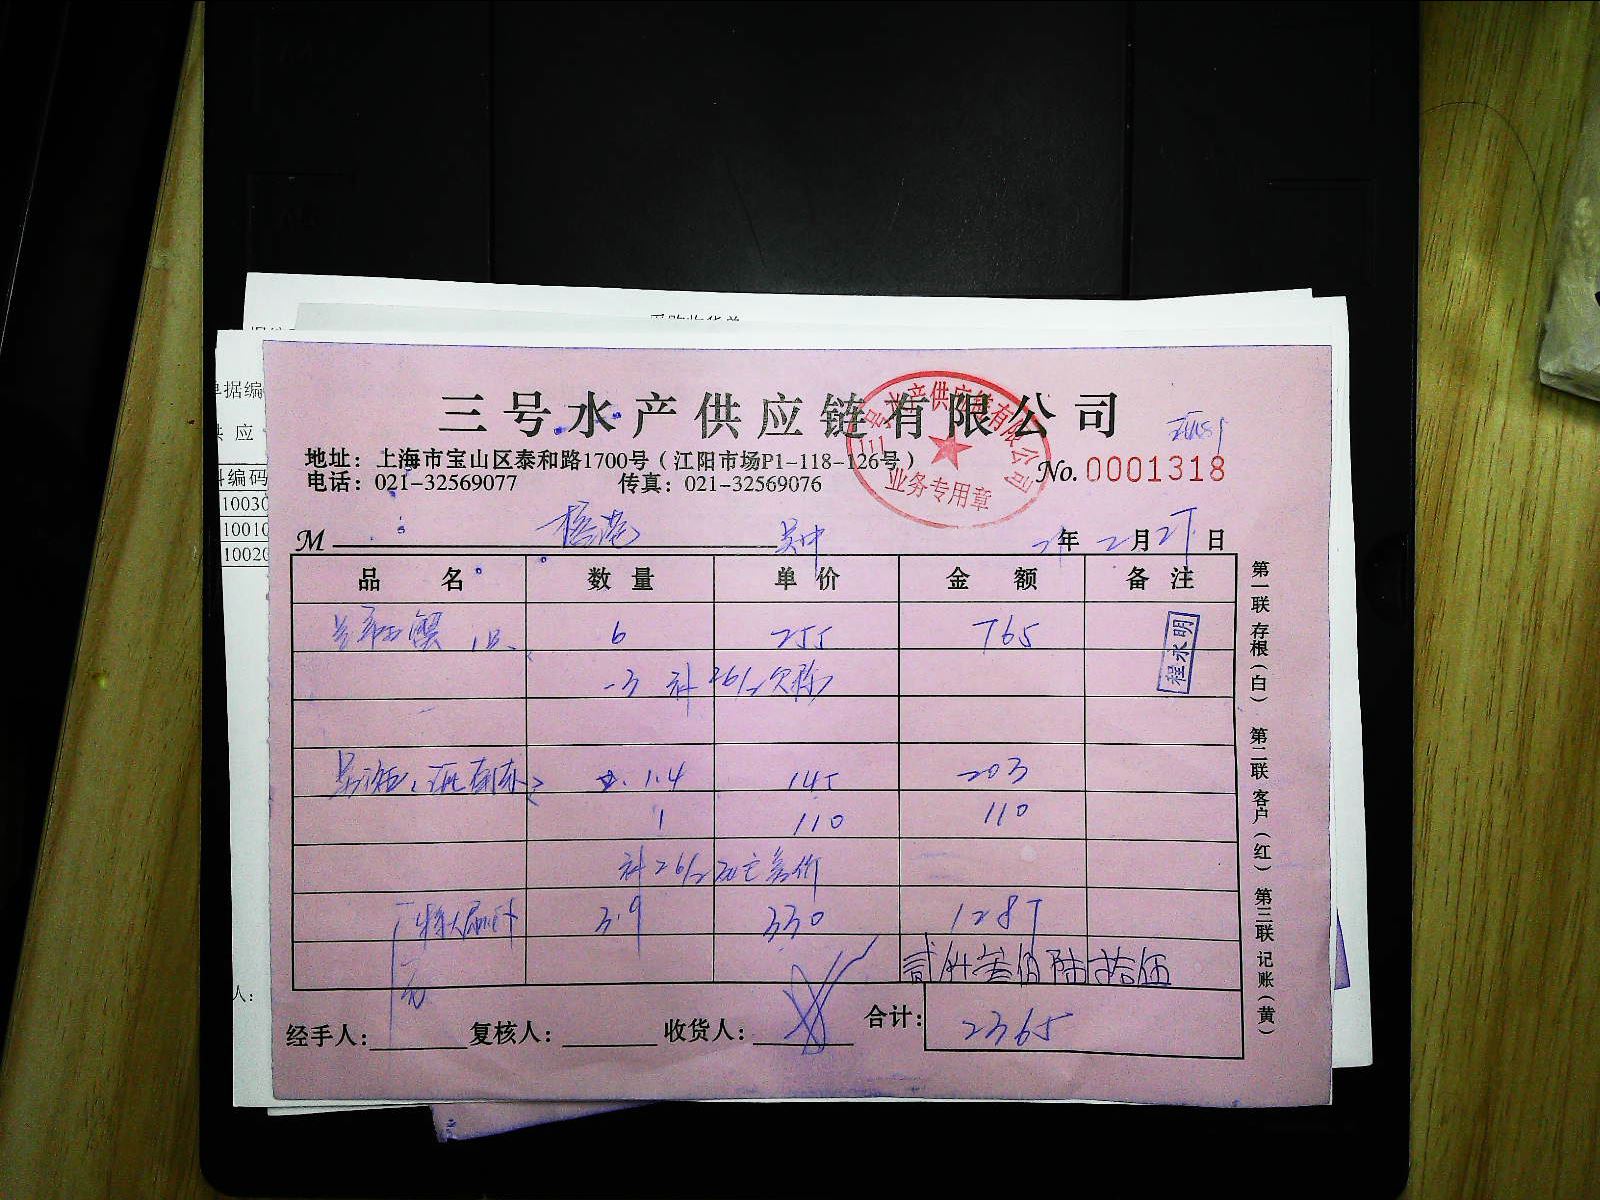 采购收货单
单据编
供 应
料编码
10030
10010
10020
人:
三号水产供应链有限公司
三号水产供应链有限公司
业务专用章
地址：上海市宝山区泰和路1700号（江阳市场P1-118-126号）
No. 0001318
电话：021-32569077 传真：021-32569076
M
年 2月27日
品 名 数 量 单 价 金 额 备 注
蟹 6 255 765
程永明
-3 补 26/2欠
1.4 145 203
1 110 110
补26/2
特大 3.9 330 1287
贰仟叁佰陆拾伍
经手人: 复核人: 收货人: 合计: 2365
第一联 存根（白） 第二联 客户（红） 第三联 记账（黄）